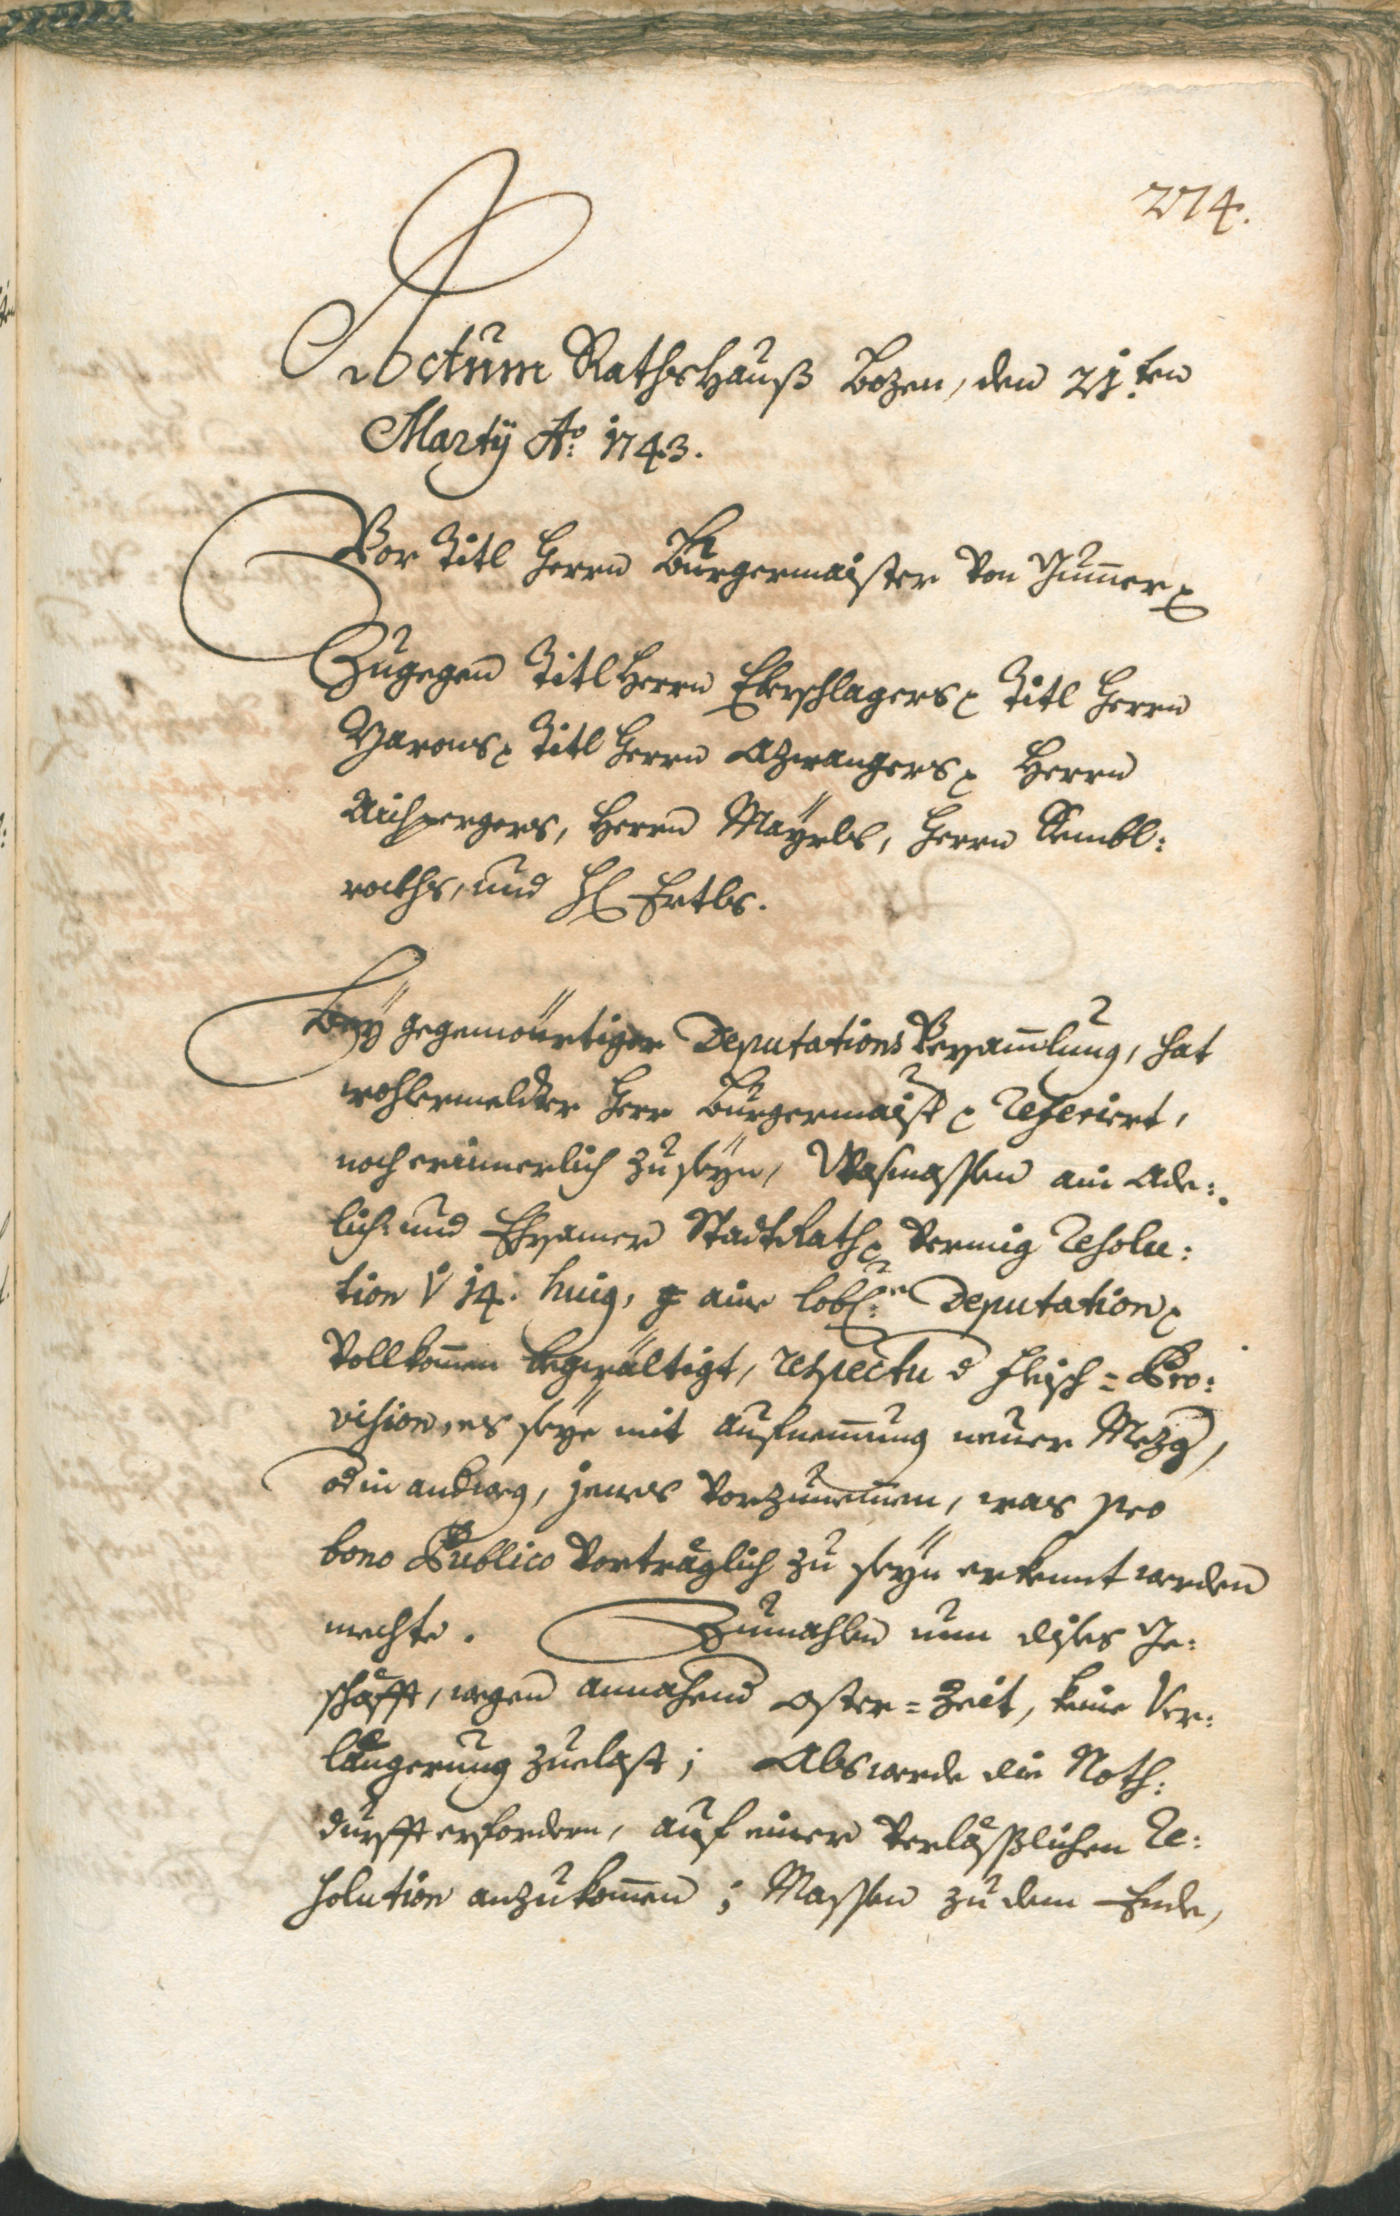 274.
Actum Rathshauß Bozen, den 21.ten
Martÿ Aõ: 1743.
Vor Titl Herrn Burgermaister von Gummer
Zugegen Titl Herrn Eberschlagers Titl Herrn
Titl Herrn Azwangers Herrn
Aichpergers, Herrn Maÿrls, Herrn Kembl:
raths, und H Ertls.
Beÿ gegenwürtiger Deputations Versam̄lung, hat
wohlermeldter Herr Burgermaist Referiert,
noch erinnerlich zu seÿn, Wasmassen ain Ade:
lich: und Ehrsamer StadtRath Vermig Resolu:
tion v 14. huig, aine lobl: Deputation
Vollkom̄en begwältigt, respectu d Fleisch=Pro:
vision, es seÿe mit aufnem̄ung neuer Mezg,
od in andweg, jenes Vorzunem̄en, was pro
bono Publico Vorträglich zu seÿn erkennt werden
mechte. Zumahlen nun dises Ge:
schäfft, wegen annahend Oster=Zeit, keine Ver:
längerung zuelast; Als werde die Noth:
durfft erfordern, auf einer Verläßlichen Re:
solution anzukom̄en; Massen zu dem Ende,